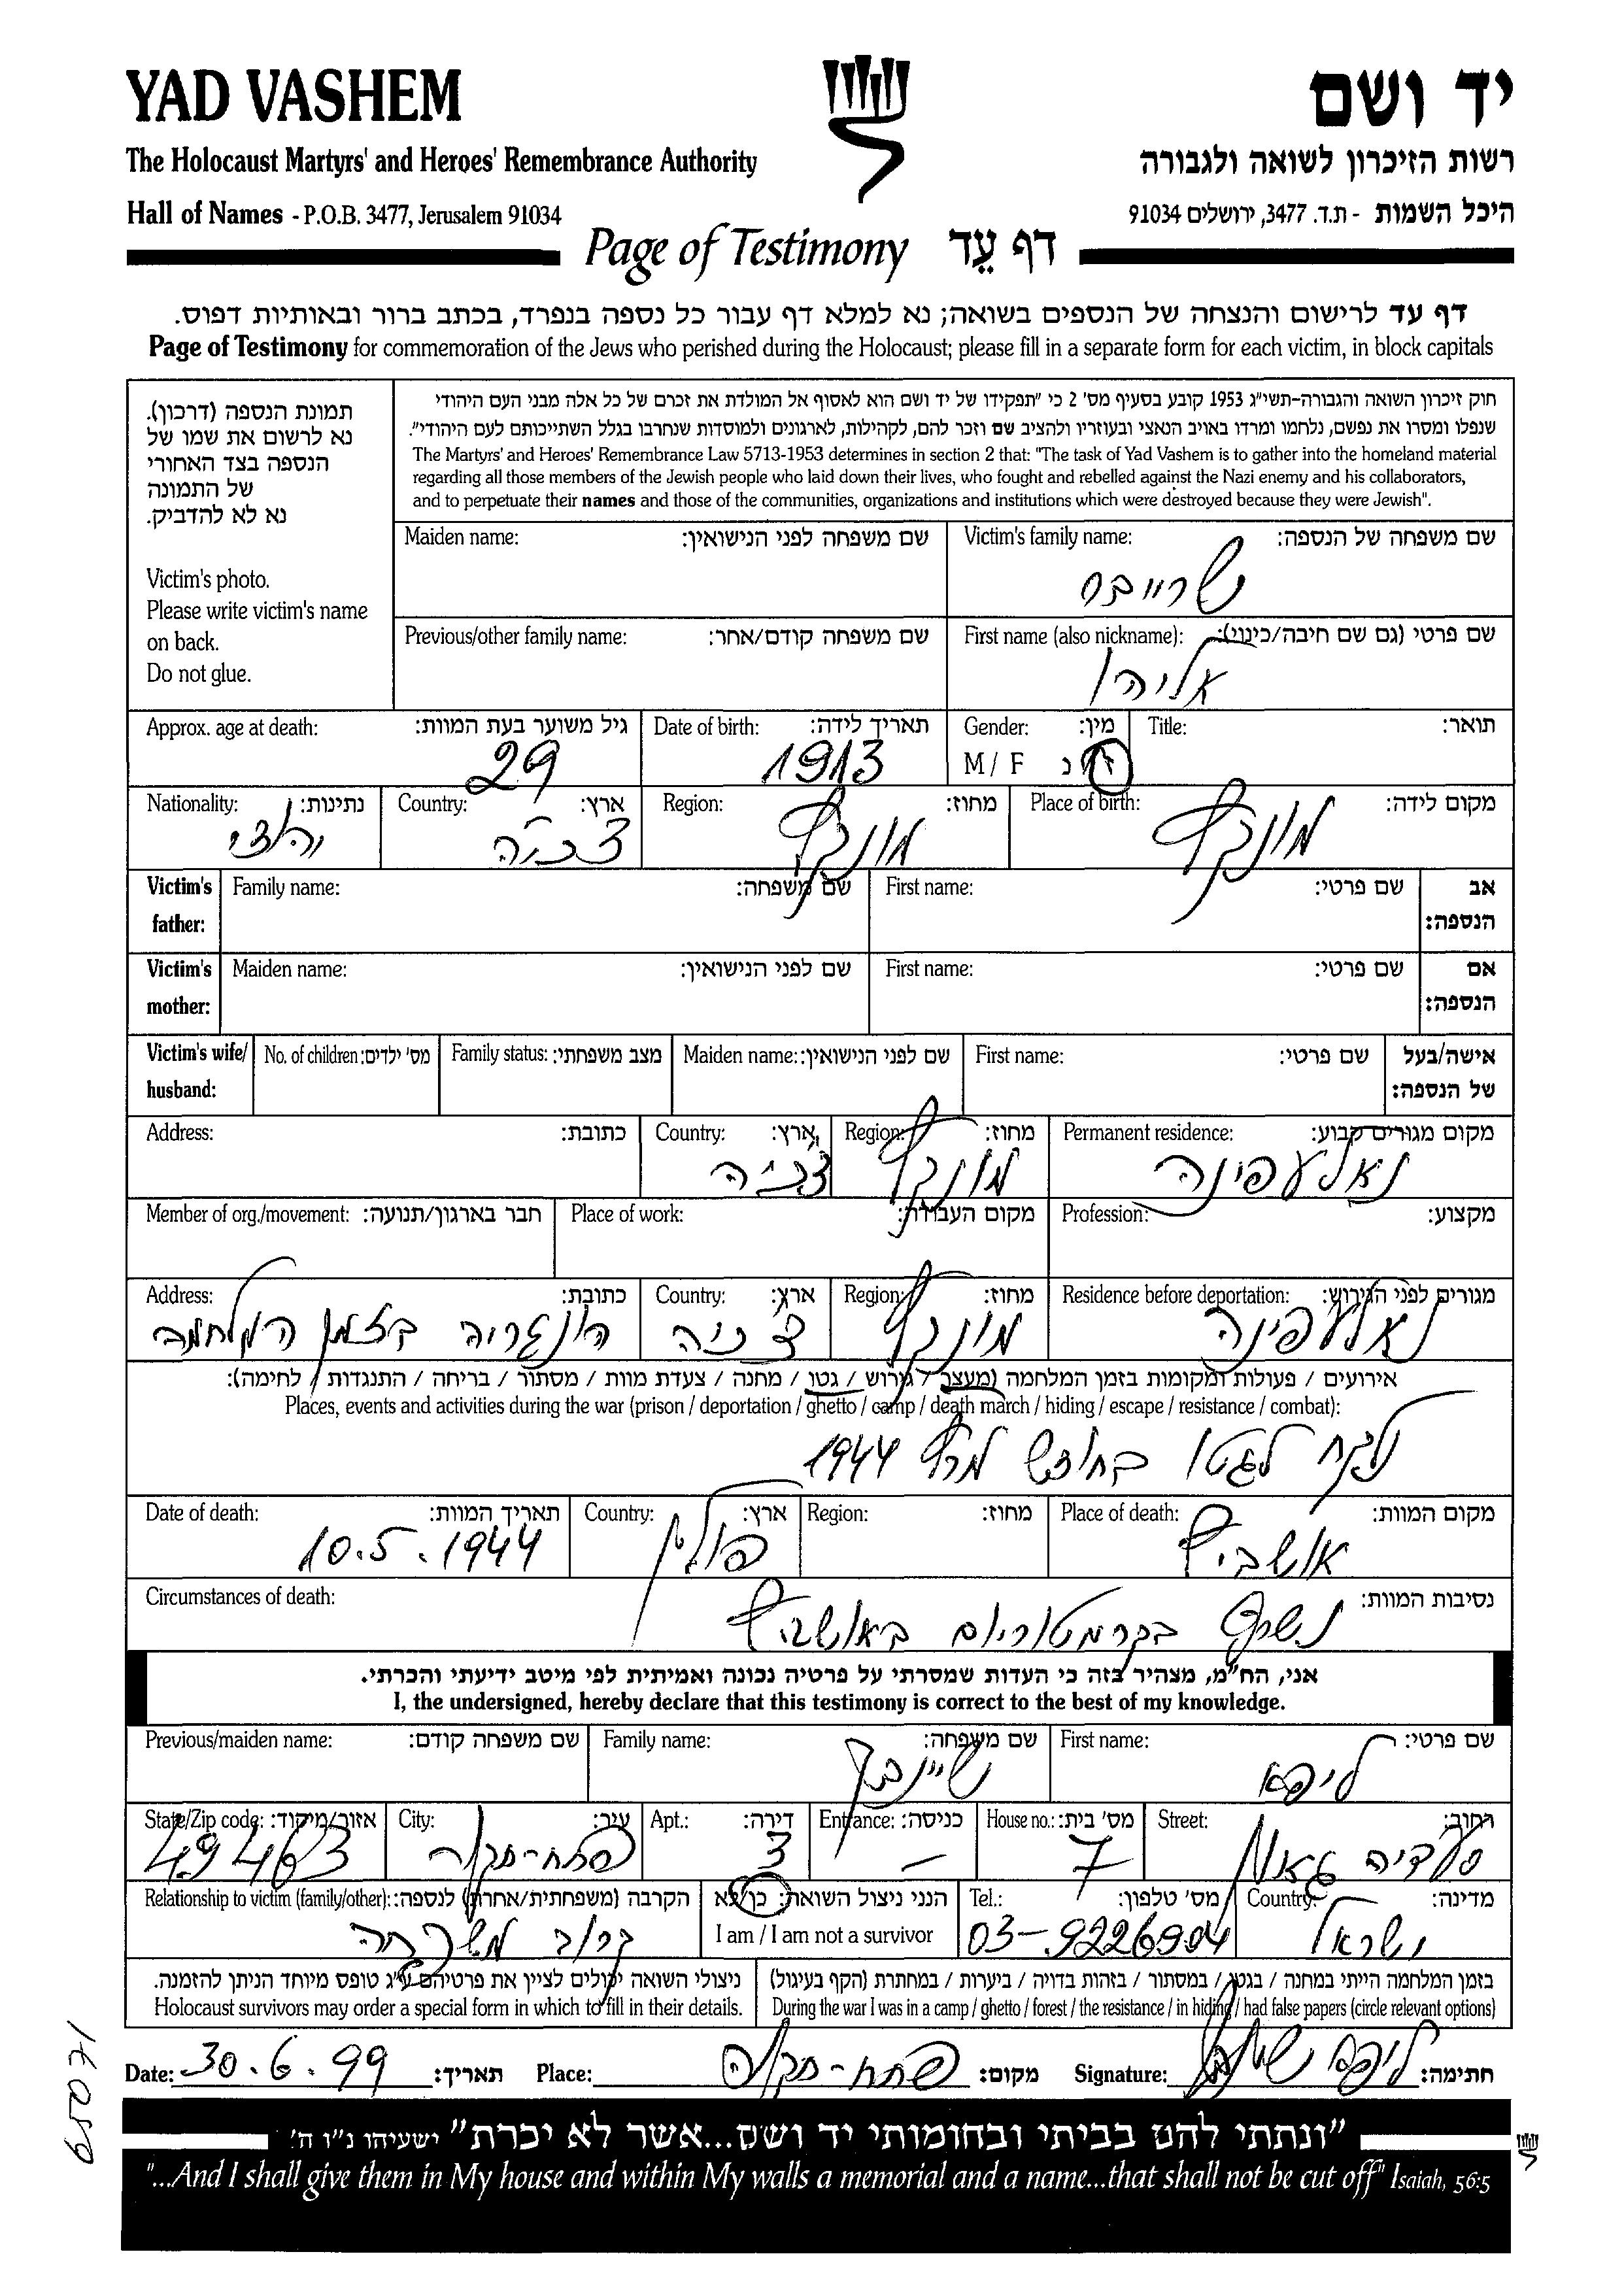 YAD VASHEM
יד ושם
The Holocaust Martyrs' and Heroes' Remembrance Authority
רשות הזיכרון לשואה ולגבורה
Hall of Names - P.O.B. 3477, Jerusalem 91034
היכל השמות - ת.ד. 3477, ירושלים 91034
Page of Testimony דף עֵד
דף עד לרישום והנצחה של הנספים בשואה; נא למלא דף עבור כל נספה בנפרד, בכתב ברור ובאותיות דפוס.
Page of Testimony for commemoration of the Jews who perished during the Holocaust; please fill in a separate form for each victim, in block capitals
תמונת הנספה (דרכון).
נא לרשום את שמו של
הנספה בצד האחורי
של התמונה
נא לא להדביק.
Victim's photo.
Please write victim's name
on back.
Do not glue.
חוק זיכרון השואה והגבורה-תשי"ג 1953 קובע בסעיף מס' 2 כי "תפקידו של יד ושם הוא לאסוף אל המולדת את זכרם של כל אלה מבני העם היהודי
שנפלו ומסרו את נפשם, נלחמו ומרדו באויב הנאצי ובעוזריו ולהציב שם וזכר להם, לקהילות, לארגונים ולמוסדות שנחרבו בגלל השתייכותם לעם היהודי".
The Martyrs' and Heroes' Remembrance Law 5713-1953 determines in section 2 that: "The task of Yad Vashem is to gather into the homeland material
regarding all those members of the Jewish people who laid down their lives, who fought and rebelled against the Nazi enemy and his collaborators,
and to perpetuate their names and those of the communities, organizations and institutions which were destroyed because they were Jewish".
Victim's family name: שם משפחה של הנספה:
שרייבס
Maiden name: שם משפחה לפני הנישואין:
First name (also nickname): שם פרטי (גם שם חיבה/כינוי):
אליהו
Previous/other family name: שם משפחה קודם/אחר:
Title: תואר:
Gender: מין:
M / F ז / נ
Date of birth: תאריך לידה:
1913
Approx. age at death: גיל משוער בעת המוות:
29
Place of birth: מקום לידה:
מונקץ'
Region: מחוז:
מונקץ'
Country: ארץ:
צ'כיה
Nationality: נתינות:
יהודי
Victim's father: אב הנספה:
First name: שם פרטי:
Family name: שם משפחה:
Victim's mother: אם הנספה:
First name: שם פרטי:
Maiden name: שם לפני הנישואין:
Victim's wife/ husband: אישה/בעל של הנספה:
First name: שם פרטי:
Maiden name: שם לפני הנישואין:
Family status: מצב משפחתי:
No. of children: מס' ילדים:
Permanent residence: מקום מגורים קבוע:
Region: מחוז:
מונקץ'
Country: ארץ:
צ'כיה
Address: כתובת:
Profession: מקצוע:
Place of work: מקום העבודה:
Member of org./movement: חבר בארגון/תנועה:
Residence before deportation: מגורים לפני הגירוש:
Region: מחוז:
מונקץ'
Country: ארץ:
צ'כיה
Address: כתובת:
הונגריה בזמן המלחמה
אירועים / פעולות ומקומות בזמן המלחמה (מעצר / גירוש / גטו / מחנה / צעדת מוות / מסתור / בריחה / התנגדות / לחימה):
Places, events and activities during the war (prison / deportation / ghetto / camp / death march / hiding / escape / resistance / combat):
נלקח לגטו בחודש מרץ 1944
Place of death: מקום המוות:
אושביץ
Region: מחוז:
Country: ארץ:
פולין
Date of death: תאריך המוות:
10.5.1944
Circumstances of death: נסיבות המוות:
נשרף בקרמטוריום באושביץ
אני, הח"מ, מצהיר בזה כי העדות שמסרתי על פרטיה נכונה ואמיתית לפי מיטב ידיעתי והכרתי.
I, the undersigned, hereby declare that this testimony is correct to the best of my knowledge.
First name: שם פרטי:
ליפא
Family name: שם משפחה:
שיינברג
Previous/maiden name: שם משפחה קודם:
Street: רחוב:
סעדיה גאון
House no.: מס' בית:
7
Entrance: כניסה:
-
Apt.: דירה:
3
City: עיר:
פתח-תקוה
State/Zip code: אזור/מיקוד:
49463
Country: מדינה:
ישראל
Tel.: מס' טלפון:
03-9226904
הנני ניצול השואה: כן/לא
I am / I am not a survivor
Relationship to victim (family/other): הקרבה (משפחתית/אחרת) לנספה:
קרוב משפחה
בזמן המלחמה הייתי במחנה / בגטו / במסתור / בזהות בדויה / ביערות / במחתרת (הקף בעיגול)
During the war I was in a camp / ghetto / forest / the resistance / in hiding / had false papers (circle relevant options)
ניצולי השואה יכולים לציין את פרטיהם ע"ג טופס מיוחד הניתן להזמנה.
Holocaust survivors may order a special form in which to fill in their details.
Date: 30.6.99 תאריך:
Place: פתח-תקוה מקום:
Signature: חתימה:
"ונתתי להם בביתי ובחומותי יד ושם...אשר לא יכרת" ישעיהו נ"ו ה'
"...And I shall give them in My house and within My walls a memorial and a name...that shall not be cut off" Isaiah, 56:5